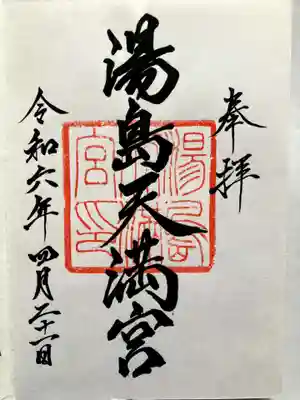 奉拝
湯島天満宮
湯島天満宮印
令和六年四月二十一日